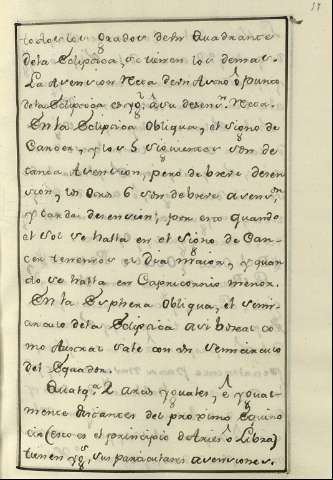 todos los grados de un Quadrante
de la Ecliptica, se unen los demas.
La Ascension Recta de un Arco, ó punto
de la Ecliptica es yg.l á su descens.n Recta.
En la Ecliptica Obliqua, el signo de
Cancer, y los 5 siguientes son de
tarda Ascension, pero de breve descen
sion, los otros 6 son de breve ascens.on
y tarda descension, por esto quando
el Sol se halla en el signo de Can-
cer tenemos el Dia maior, y quan
do se halla en Capricornio menor.
En la Esphera Obliqua, el semi-
circulo de la Ecliptica asi boreal co
mo Austral sale con un semicirculo
del Equador.
Qualq.a 2 arcos yguales, e ygual-
mente distantes del proximo Equino
cio (esto es el principio de Aries ó Libra)
tienen yg.s sus particulares ascensiones.